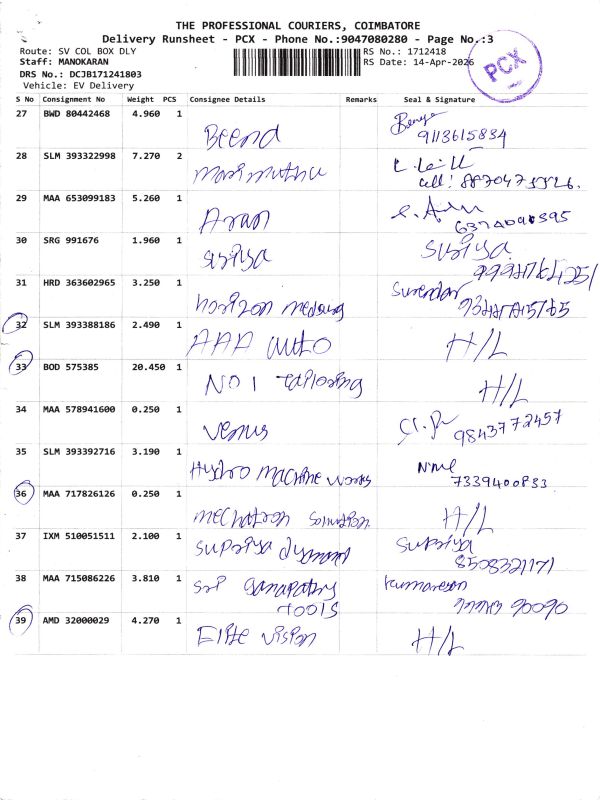 THE PROFESSIONAL COURIERS, COIMBATORE
Delivery Runsheet - PCX - Phone No.:9047080280 - Page No.:3
Route: SV COL BOX DLY RS No.: 1712418
Staff: MANOKARAN RS Date: 14-Apr-2026
DRS No.: DCJB171241803
Vehicle: EV Delivery
PCX
S No Consignment No Weight PCS Consignee Details Remarks Seal & Signature
27 BWD 80442468 4.960 1
Beend 9113615834
28 SLM 393322998 7.270 2
marimuthu
cell:
29 MAA 653099183 5.260 1
Aran
30 SRG 991676 1.960 1
suriya suriya
31 HRD 363602965 3.250 1
horizon Surendar
32 SLM 393388186 2.490 1
AAA auto H/L
33 BOD 575385 20.450 1
NO 1 tailoring H/L
34 MAA 578941600 0.250 1
venus 9843772457
35 SLM 393392716 3.190 1
Hydro machine works 7339400833
36 MAA 717826126 0.250 1
mechatron H/L
37 IXM 510051511 2.100 1
supriya supriya
8508321171
38 MAA 715086226 3.810 1
sri ganapathy kumaresan
tools
39 AMD 32000029 4.270 1
Elite vision H/L